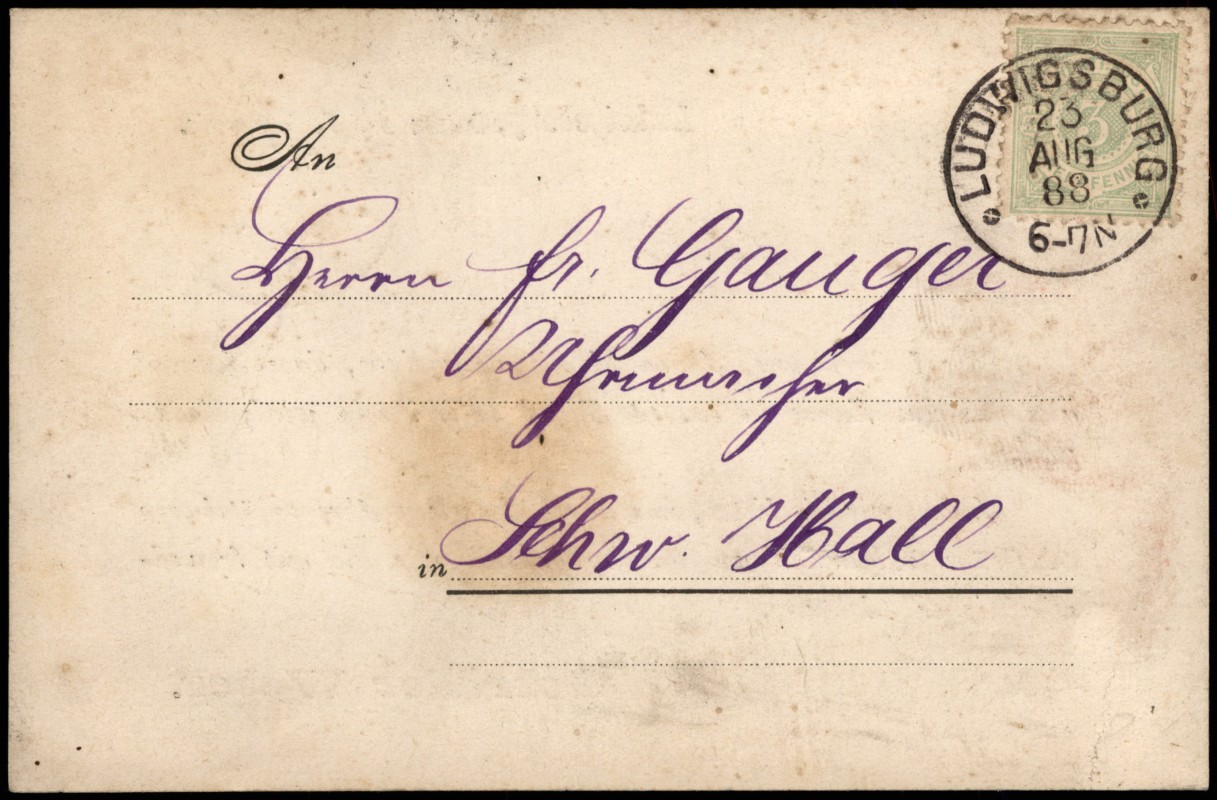 LUDWIGSBURG
23
AUG
88
6-7N
3
PFENNIG
An
Herrn Fr. Gauger
Uhrmacher
in Schw. Hall